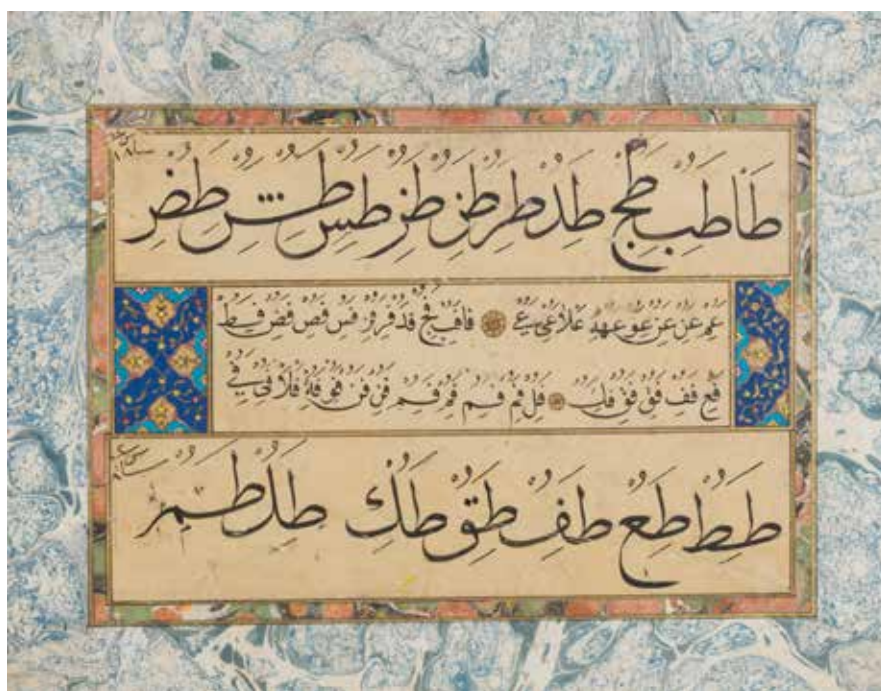 طا طب طج طد طر طز طس طش
عم عن عن عو عهه علا عى عے فا فب فج فد فر فز فس فص فض فط
فع فف فق فق فك فل فم فم فم فم فن فن فو فه فلا فى فے
طط طع طف طق طك طل طم